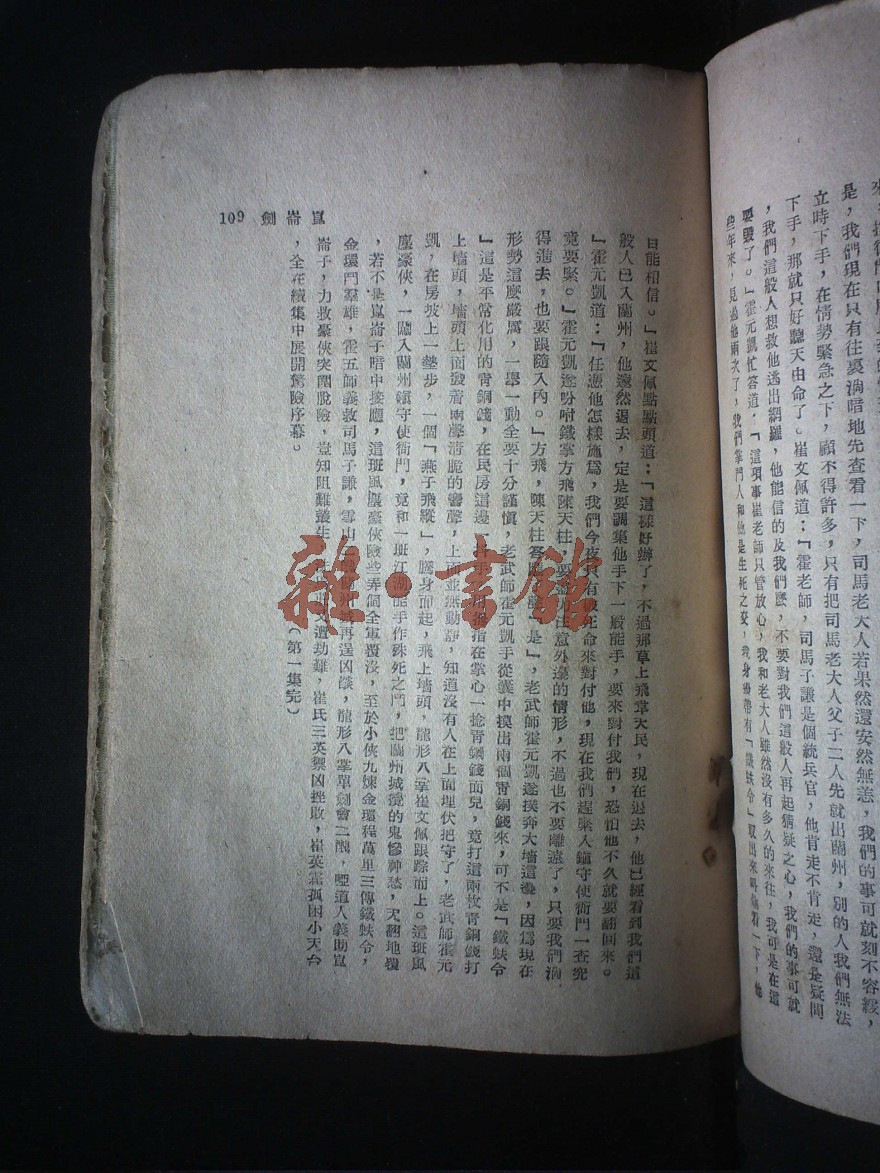 來，
是，我們現在只有往裏淌暗地先查看一下，司馬老大人若果然還安然無恙，我們的事可就刻不容緩，
立時下手，在情勢緊急之下，顧不得許多，只有把司馬老大人父子二人先就出蘭州，別的人我們無法
下手，那就只好聽天由命了。崔文佩道：「霍老師，司馬子謙是個統兵官，他肯走不肯走，還是疑問
，我們這般人想救他逃出網羅，他能信的及我們麽，不要對我們這般人再起猜疑之心，我們的事可就
要毀了。」霍元凱忙答道，「這項事崔老師只管放心，我和老大人雖然沒有多久的來往，我可是在這
些年來，見過他兩次了，我們掌門人和他是生死之交，我身畔帶有「鐵蚨令」取出來叫他看一下，他
自能相信。」崔文佩點點頭道：「這樣好辦了，不過那草上飛章天民，現在退去，他已經看到我們這
般人已入蘭州，他還然退去，定是要調集他手下一般能手，要來對付我們，恐怕他不久就要翻回來。
「霍元凱道：「任憑他怎樣施爲，我們今夜只有拚死命來對付他，現在我們趕緊入鎮守使衙門一查究
竟要緊。」霍元凱遂吩咐鐵掌方飛陳天柱，要注意外邊的情形，不過也不要離遠了，只要我們淌
得進去，也要跟隨入內。」方飛，陳天柱答應「是」，老武師霍元凱遂撲奔大墻這邊，因爲現在
形勢這麽嚴厲，一舉一動全要十分謹慎，老武師霍元凱手從囊中摸出兩個青銅錢來，可不是「鐵蚨令
」這是平常化用的青銅錢，在民房這邊，指在掌心一捻青銅錢面兒，竟打這兩枚青銅錢打
上墻頭，墻頭上面發着兩聲清脆的響聲，上面並無動靜，知道沒有人在上面埋伏把守了，老武師霍元
凱，在房坡上一墊步，一個「燕子飛縱」，騰身而起，飛上墻頭，龍形八掌崔文佩跟踪而上。這班風
塵豪俠，一闖入蘭州鎮守使衙門，竟和一班江湖能手作殊死之鬥，把蘭州城攪的鬼慘神愁，天翻地覆
，若不是崑崙子暗中接應，這班風塵豪俠險些弄個全軍覆沒，至於小俠九煉金環程萬里三傳鐵蚨令，
金環門羣雄，霍五師義救司馬子謙，雪山二醜再逞凶燄，龍形八掌單劍會二醜，啞道人義助崑
崙子，力救豪俠突圍脫險，豈知阻難叢生，又遭劫難，崔氏三英禦凶挫敗，崔英霜孤困小天台
，全在續集中展開驚險序幕。
（第一集完）
崑崙劍 109
雜·書館